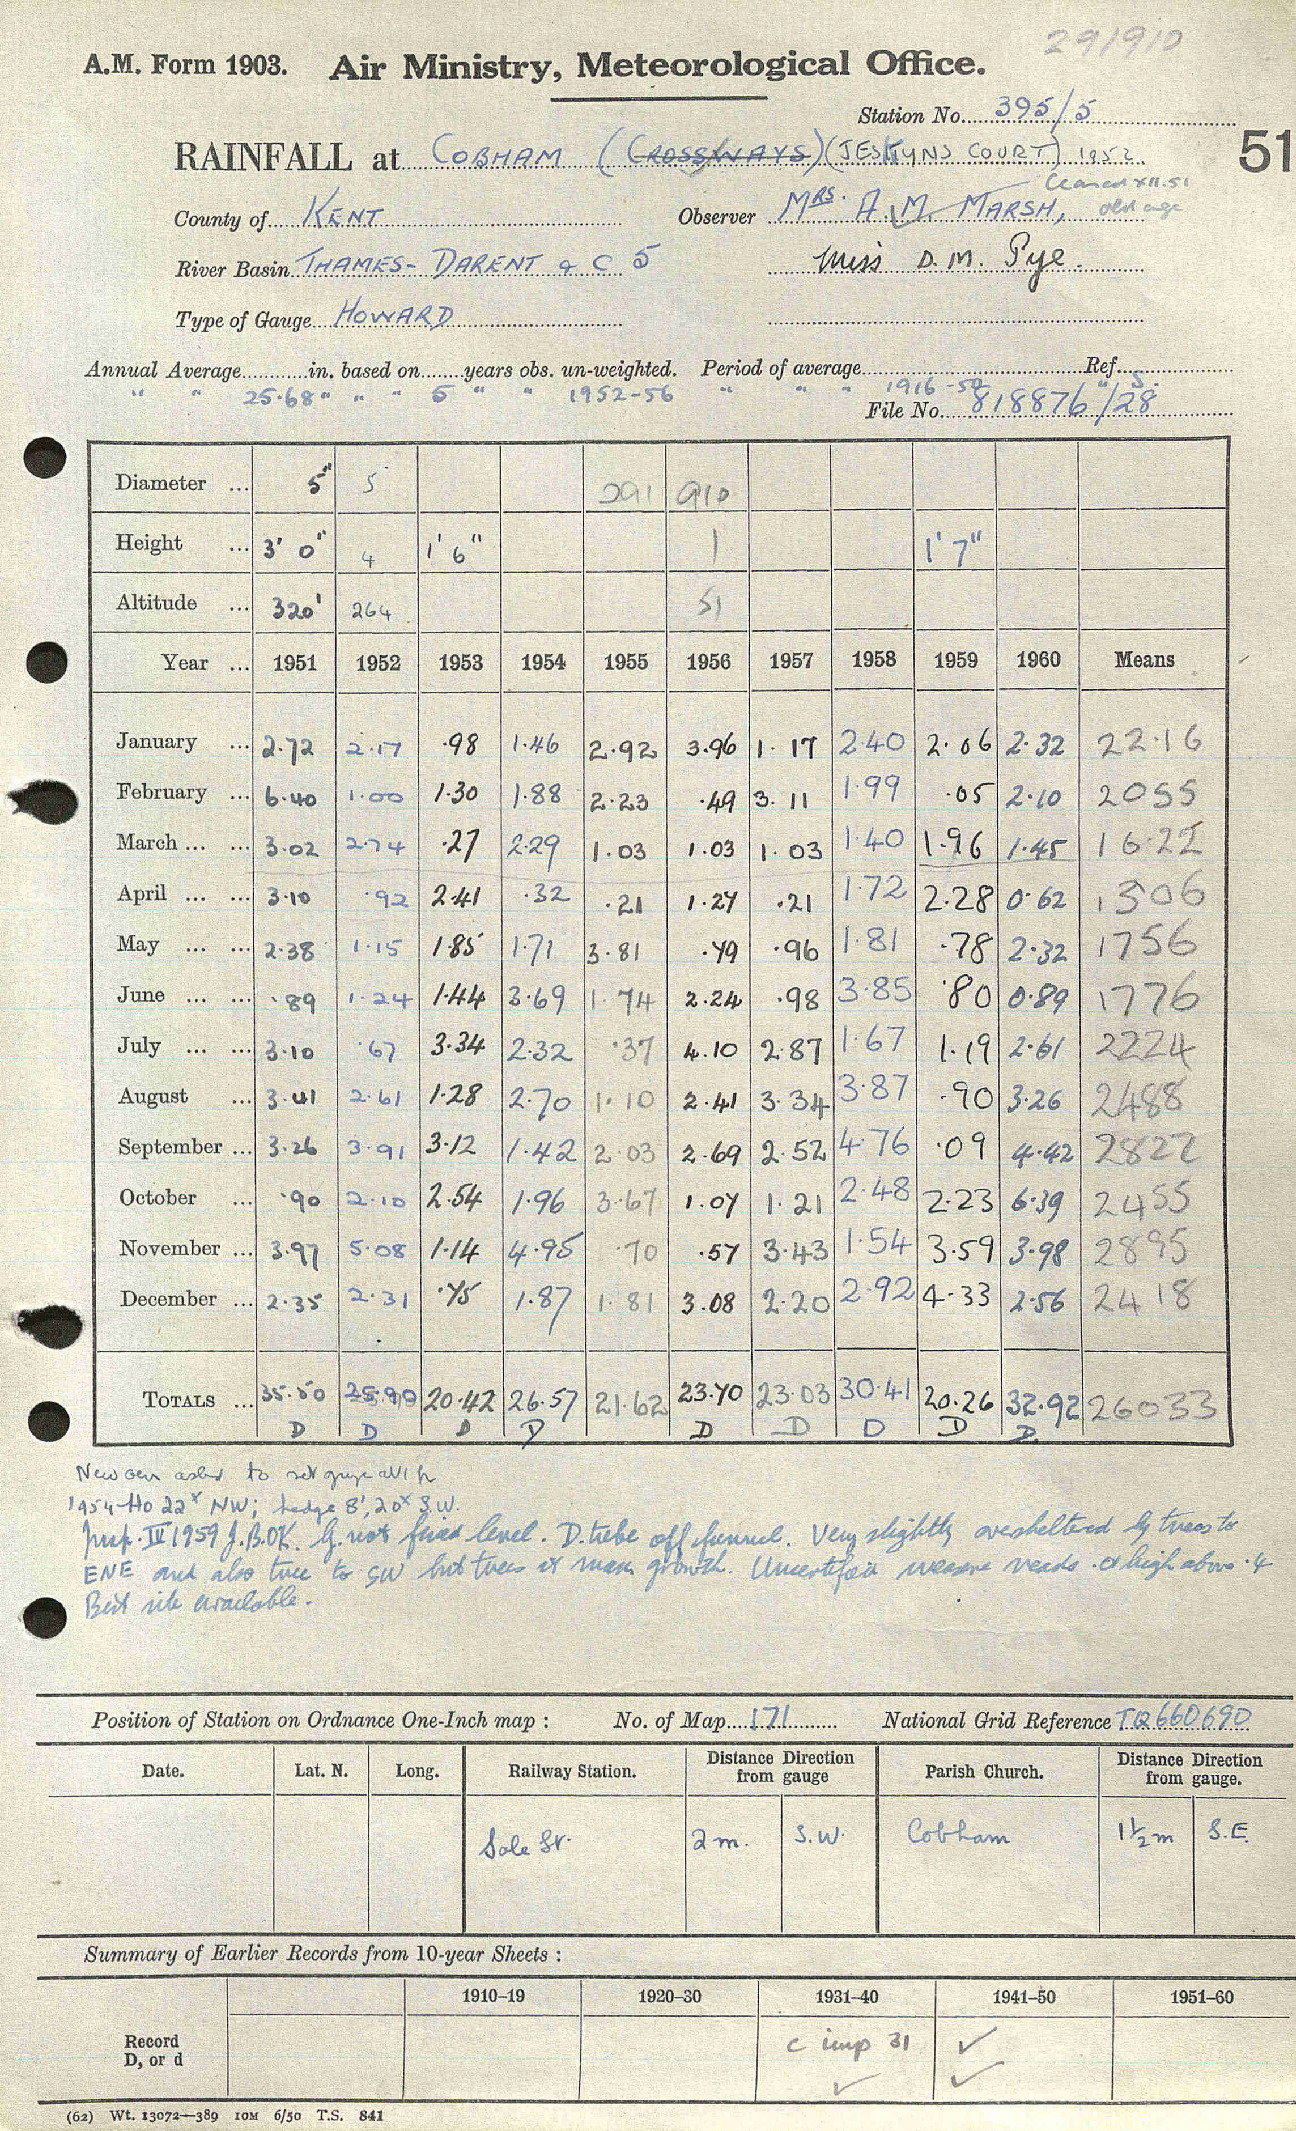 291910
A.M. Form 1903. Air Ministry, Meteorological Office.
Station No. 395/5
51
RAINFALL at COBHAM (CROSSWAYS) (JESKYNS COURT) 1952
Ceased XII.51
County of KENT Observer MRS. A.M. MARSH, old age
River Basin THAMES - DARENT & C 5 Miss D.M. Pye.
Type of Gauge HOWARD
Annual Average in. based on years obs. un-weighted. Period of average Ref.
" " 25.68 " " " 5 " " 1952-56 " " " 1916-50 " 5.
File No. 818876/28
Diameter ... 5" 5 291 910
Height ... 3' 0" 4 1' 6" 1 1' 7"
Altitude ... 320' 264 51
Year ... 1951 1952 1953 1954 1955 1956 1957 1958 1959 1960 Means
January ... 2.72 2.17 .98 1.46 2.92 3.96 1.17 2.40 2.06 2.32 22.16
February ... 6.40 1.00 1.30 1.88 2.23 .49 3.11 1.99 .05 2.10 2055
March ... ... 3.02 2.74 .27 2.29 1.03 1.03 1.03 1.40 1.96 1.45 16.22
April ... ... 3.10 .92 2.41 .32 .21 1.27 .21 1.72 2.28 0.62 1306
May ... ... 2.38 1.15 1.85 1.71 3.81 .79 .96 1.81 .78 2.32 1756
June ... ... .89 1.24 1.44 3.69 1.74 2.24 .98 3.85 .80 0.89 1776
July ... ... 3.10 .67 3.34 2.32 .37 4.10 2.87 1.67 1.19 2.61 2224
August ... 3.41 2.61 1.28 2.70 1.10 2.41 3.34 3.87 .90 3.26 2488
September ... 3.26 3.91 3.12 1.42 2.03 2.69 2.52 4.76 .09 4.42 2822
October ... .90 2.10 2.54 1.96 3.67 1.07 1.21 2.48 2.23 6.39 2455
November ... 3.97 5.08 1.14 4.95 .70 .57 3.43 1.54 3.59 3.98 2895
December ... 2.35 2.31 .75 1.87 1.81 3.08 2.20 2.92 4.33 2.56 2418
TOTALS ... 35.50 25.90 20.42 26.57 21.62 23.70 23.03 30.41 20.26 32.92 26033
D D D D D D D D D
New asked to set gauge
1954 Ho 22x NW; hedge 8', 20x S.W.
Insp. IV 1959 J.B. OK. G. not fixed level. D. tube off funnel. Very slightly oversheltered by trees to
ENE and also tree to SW but trees at max growth. Uncertified measure reads .01 high above .4
Best site available.
Position of Station on Ordnance One-Inch map : No. of Map 171 National Grid Reference TQ 660690
Date. Lat. N. Long. Railway Station. Distance Direction from gauge Parish Church. Distance Direction from gauge.
Sole St. 2 m. S.W. Cobham 1½ m S.E.
Summary of Earlier Records from 10-year Sheets :
1910-19 1920-30 1931-40 1941-50 1951-60
Record c imp 31 ✓
D, or d ✓ ✓
(62) Wt. 13072—389 10M 6/50 T.S. 841